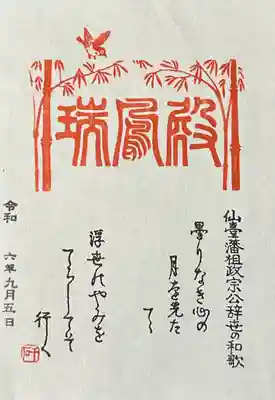 瑞鳳殿
仙臺藩祖政宗公辞世の和歌
曇りなき心の
月を先た
てゝ
浮世のやみを
てらしてそ
行く
令和 六年九月五日